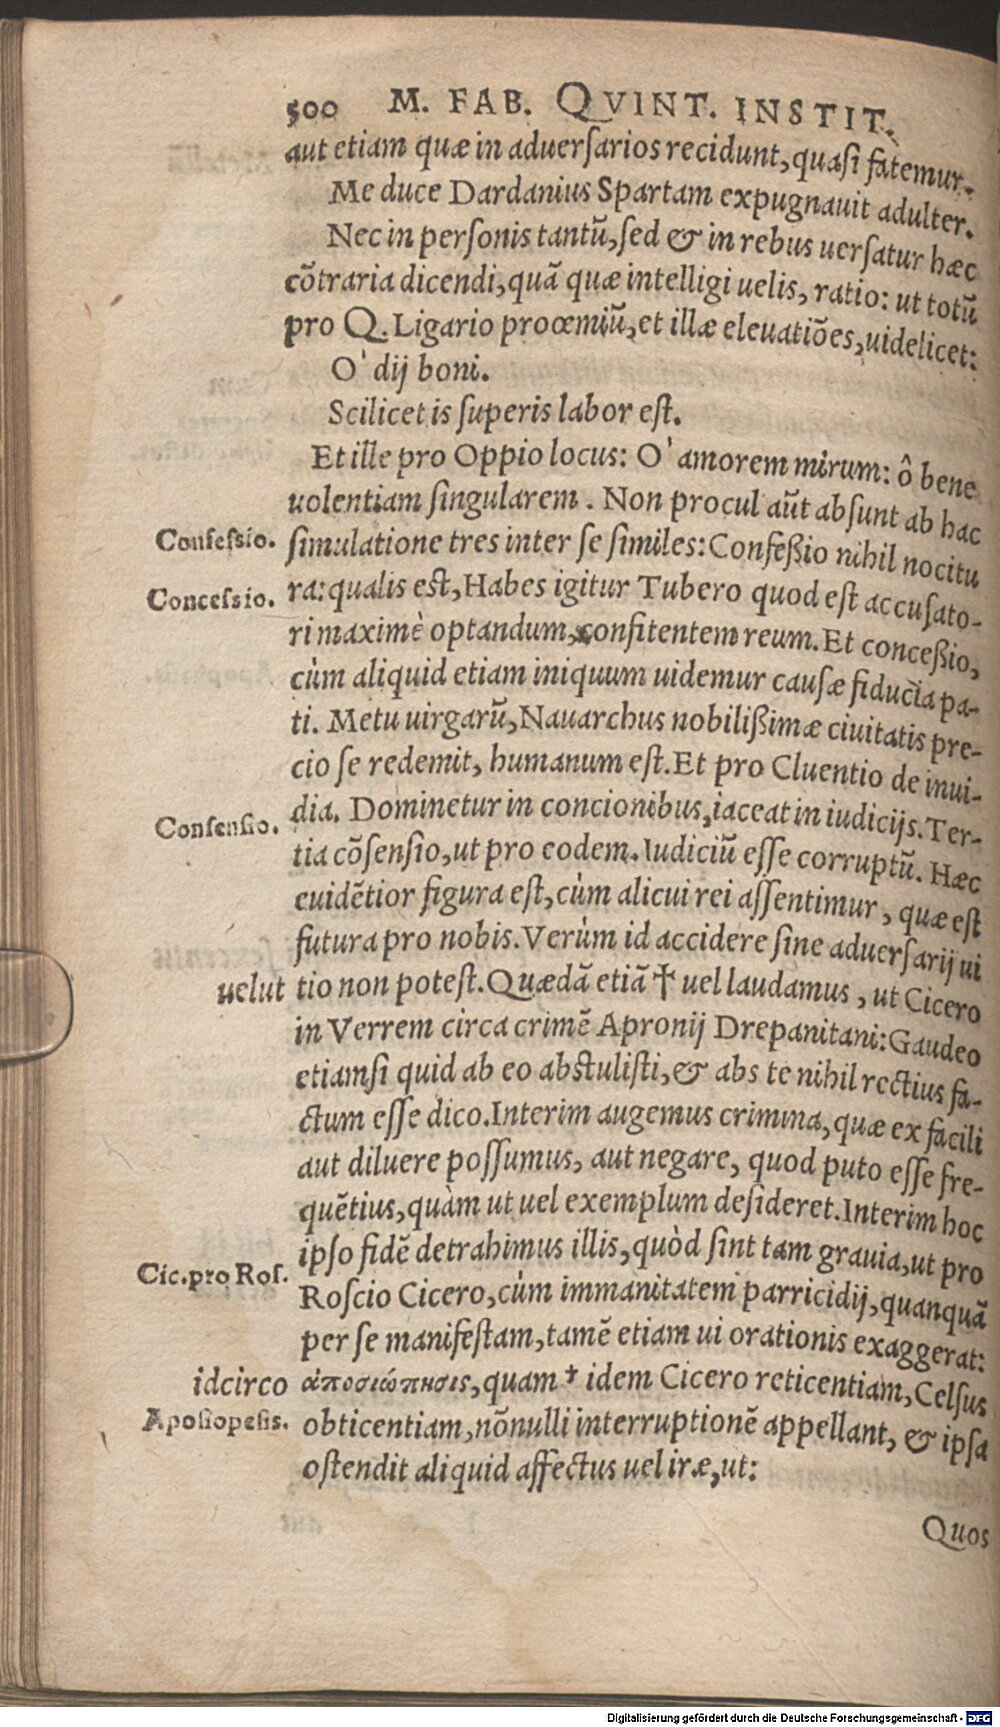 500 M. FAB. QVINT. INSTIT.
aut etiam quæ in aduerſarios recidunt, quaſi fatemur.
Me duce Dardanius Spartam expugnauit adulter.
Nec in perſonis tantū, ſed & in rebus uerſatur hæc
cōtraria dicendi, quā quæ intelligi uelis, ratio: ut totū
pro Q. Ligario proœmiū, et illæ eleuatiōes, uidelicet:
O' dij boni.
Scilicet is ſuperis labor eſt.
Et ille pro Oppio locus: O' amorem mirum: ô bene
uolentiam ſingularem. Non procul aūt abſunt ab hac
Confeſsio. ſimulatione tres inter ſe ſimiles: Confeßio nihil nocitu
Conceſsio. ra: qualis eſt, Habes igitur Tubero quod eſt accuſato-
ri maximè optandum, confitentem reum. Et conceßio,
cùm aliquid etiam iniquum uidemur cauſæ fiducia pa-
ti. Metu uirgarū, Nauarchus nobilißimæ ciuitatis pre-
cio ſe redemit, humanum eſt. Et pro Cluentio de inui-
dia. Dominetur in concionibus, iaceat in iudicijs. Ter-
Conſenſio. tia cōſenſio, ut pro eodem. Iudiciū eſſe corruptū. Hæc
euidētior figura eſt, cùm alicui rei aſſentimur, quæ eſt
futura pro nobis. Verùm id accidere ſine aduerſarij ui
uelut tio non poteſt. Quædā etiā † uel laudamus, ut Cicero
in Verrem circa crimē Apronij Drepanitani: Gaudeo
etiamſi quid ab eo abſtuliſti, & abs te nihil rectius fa-
ctum eſſe dico. Interim augemus crimina, quæ ex facili
aut diluere poſſumus, aut negare, quod puto eſſe fre-
quētius, quàm ut uel exemplum deſideret. Interim hoc
ipſo fidē detrahimus illis, quòd ſint tam grauia, ut pro
Cic. pro Roſ. Roſcio Cicero, cùm immanitatem parricidij, quanquā
per ſe manifeſtam, tamē etiam ui orationis exaggerat:
idcirco ἀποσιώπησις, quam † idem Cicero reticentiam, Celſus
Apoſiopeſis. obticentiam, nōnulli interruptionē appellant, & ipſa
oſtendit aliquid affectus uel iræ, ut:
Quos
Digitalisierung gefördert durch die Deutsche Forschungsgemeinschaft - DFG